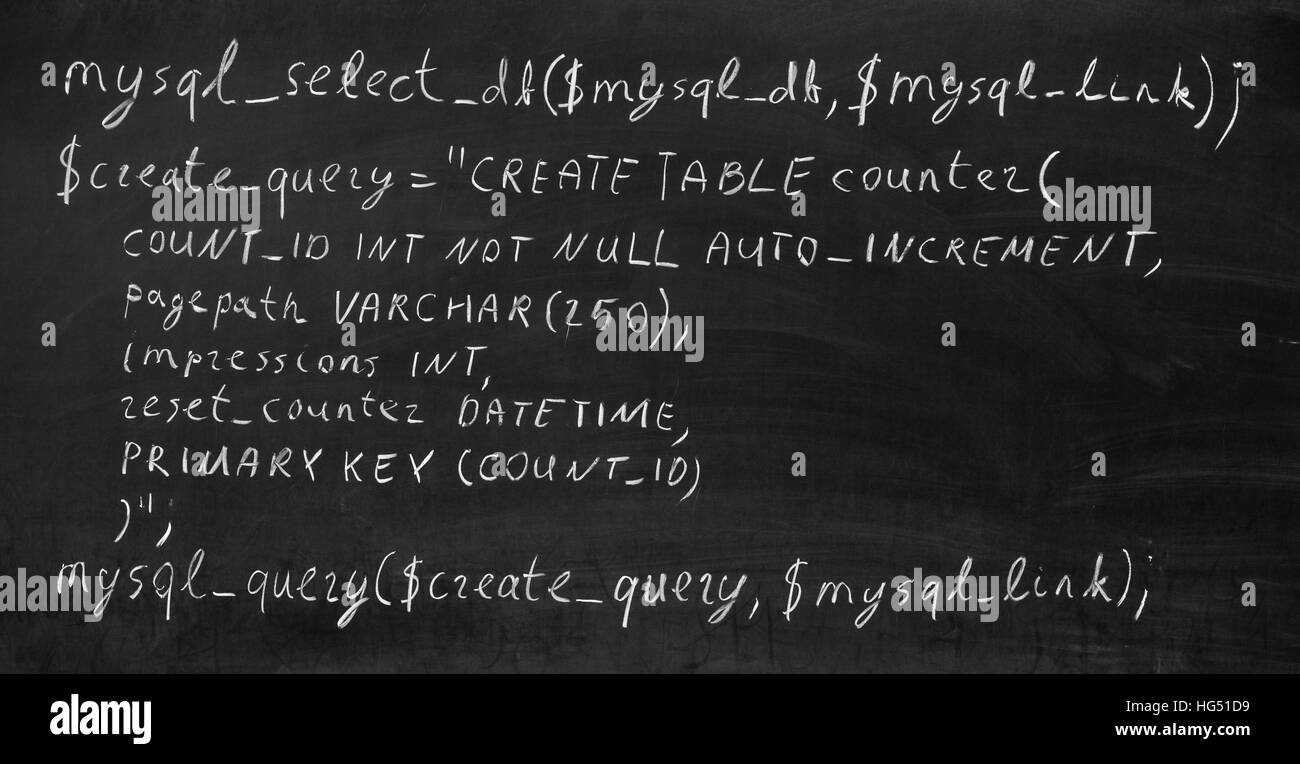 mysql_select_db($mysql_db, $mysql_link);
$create_query="CREATE TABLE counter(
COUNT_ID INT NOT NULL AUTO_INCREMENT,
pagepath VARCHAR(250),
impressions INT,
reset_counter DATETIME,
PRIMARY KEY (COUNT_ID)
)";
mysql_query($create_query, $mysql_link);
alamy
a alamy stock photo
HG51D9
www.alamy.com